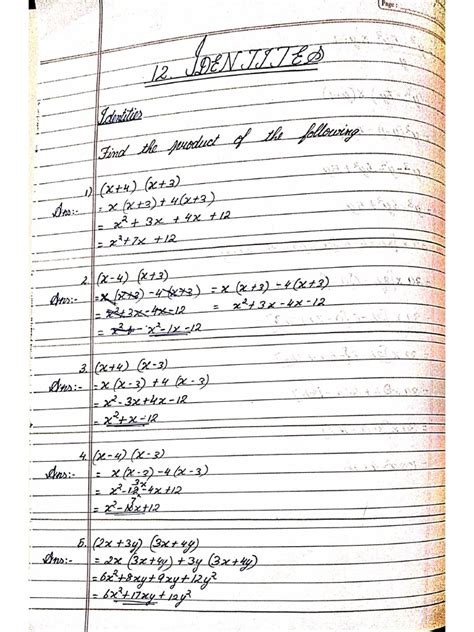 Page:
12. IDENTITES
Identities
Find the product of the following.
1) (x+4) (x+3)
Ans:- = x (x+3) + 4(x+3)
= x² + 3x + 4x + 12
= x² + 7x + 12
2. (x-4) (x+3)
Ans:- = x (x+3) - 4 (x+3) = x (x+3) - 4(x+3)
= x²+3x-4x-12 = x²+3x-4x-12
= x²+ x²-1x-12
3. (x+4) (x-3)
Ans:- = x (x-3) + 4 (x-3)
= x²-3x+4x-12
= x²+x-12
4. (x-4) (x-3)
Ans:- = x(x-3) - 4(x-3)
= x²-3x-4x+12
= x²-7x+12
5. (2x+3y) (3x+4y)
Ans:- = 2x (3x+4y) + 3y (3x+4y)
= 6x²+8xy+9xy+12y²
= 6x²+17xy+12y²